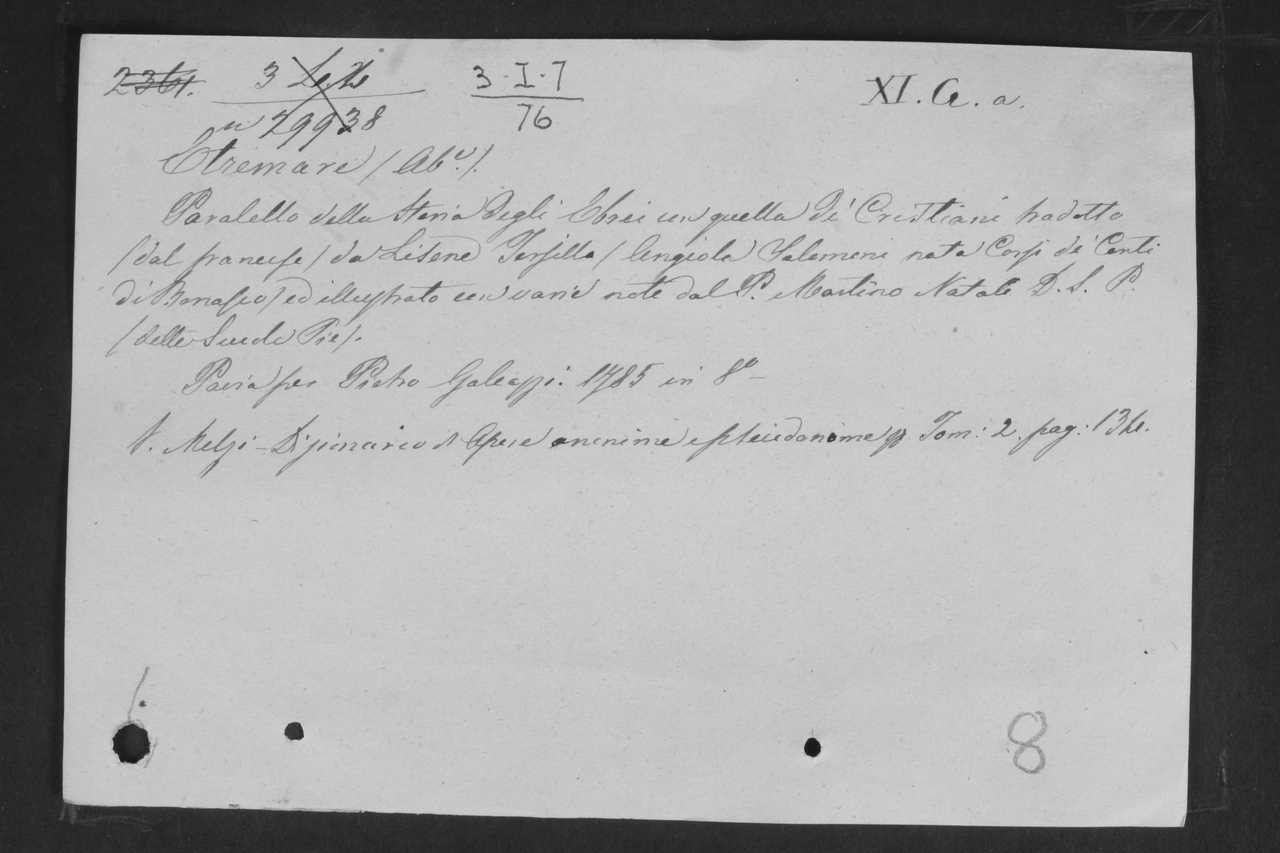 2361. 3 3·I·7 XI. A. a.
n 29938 76
Etremare (Ab.e).
Paralello della Storia degli Ebrei con quella de' Cristiani tradotto
(dal francese) da Lisene Tersilla (Angiola Salemoni nata Corsi de' Conti
di Bonasco) ed illustrato con varie note dal P. Martino Natali D. S. P.
(delle Scuole Pie).
Pavia per Pietro Galeazzi. 1785 in 8°
V. Melzi - Dizionario di Opere anonime e pseudonime Tom: 2. pag: 
8